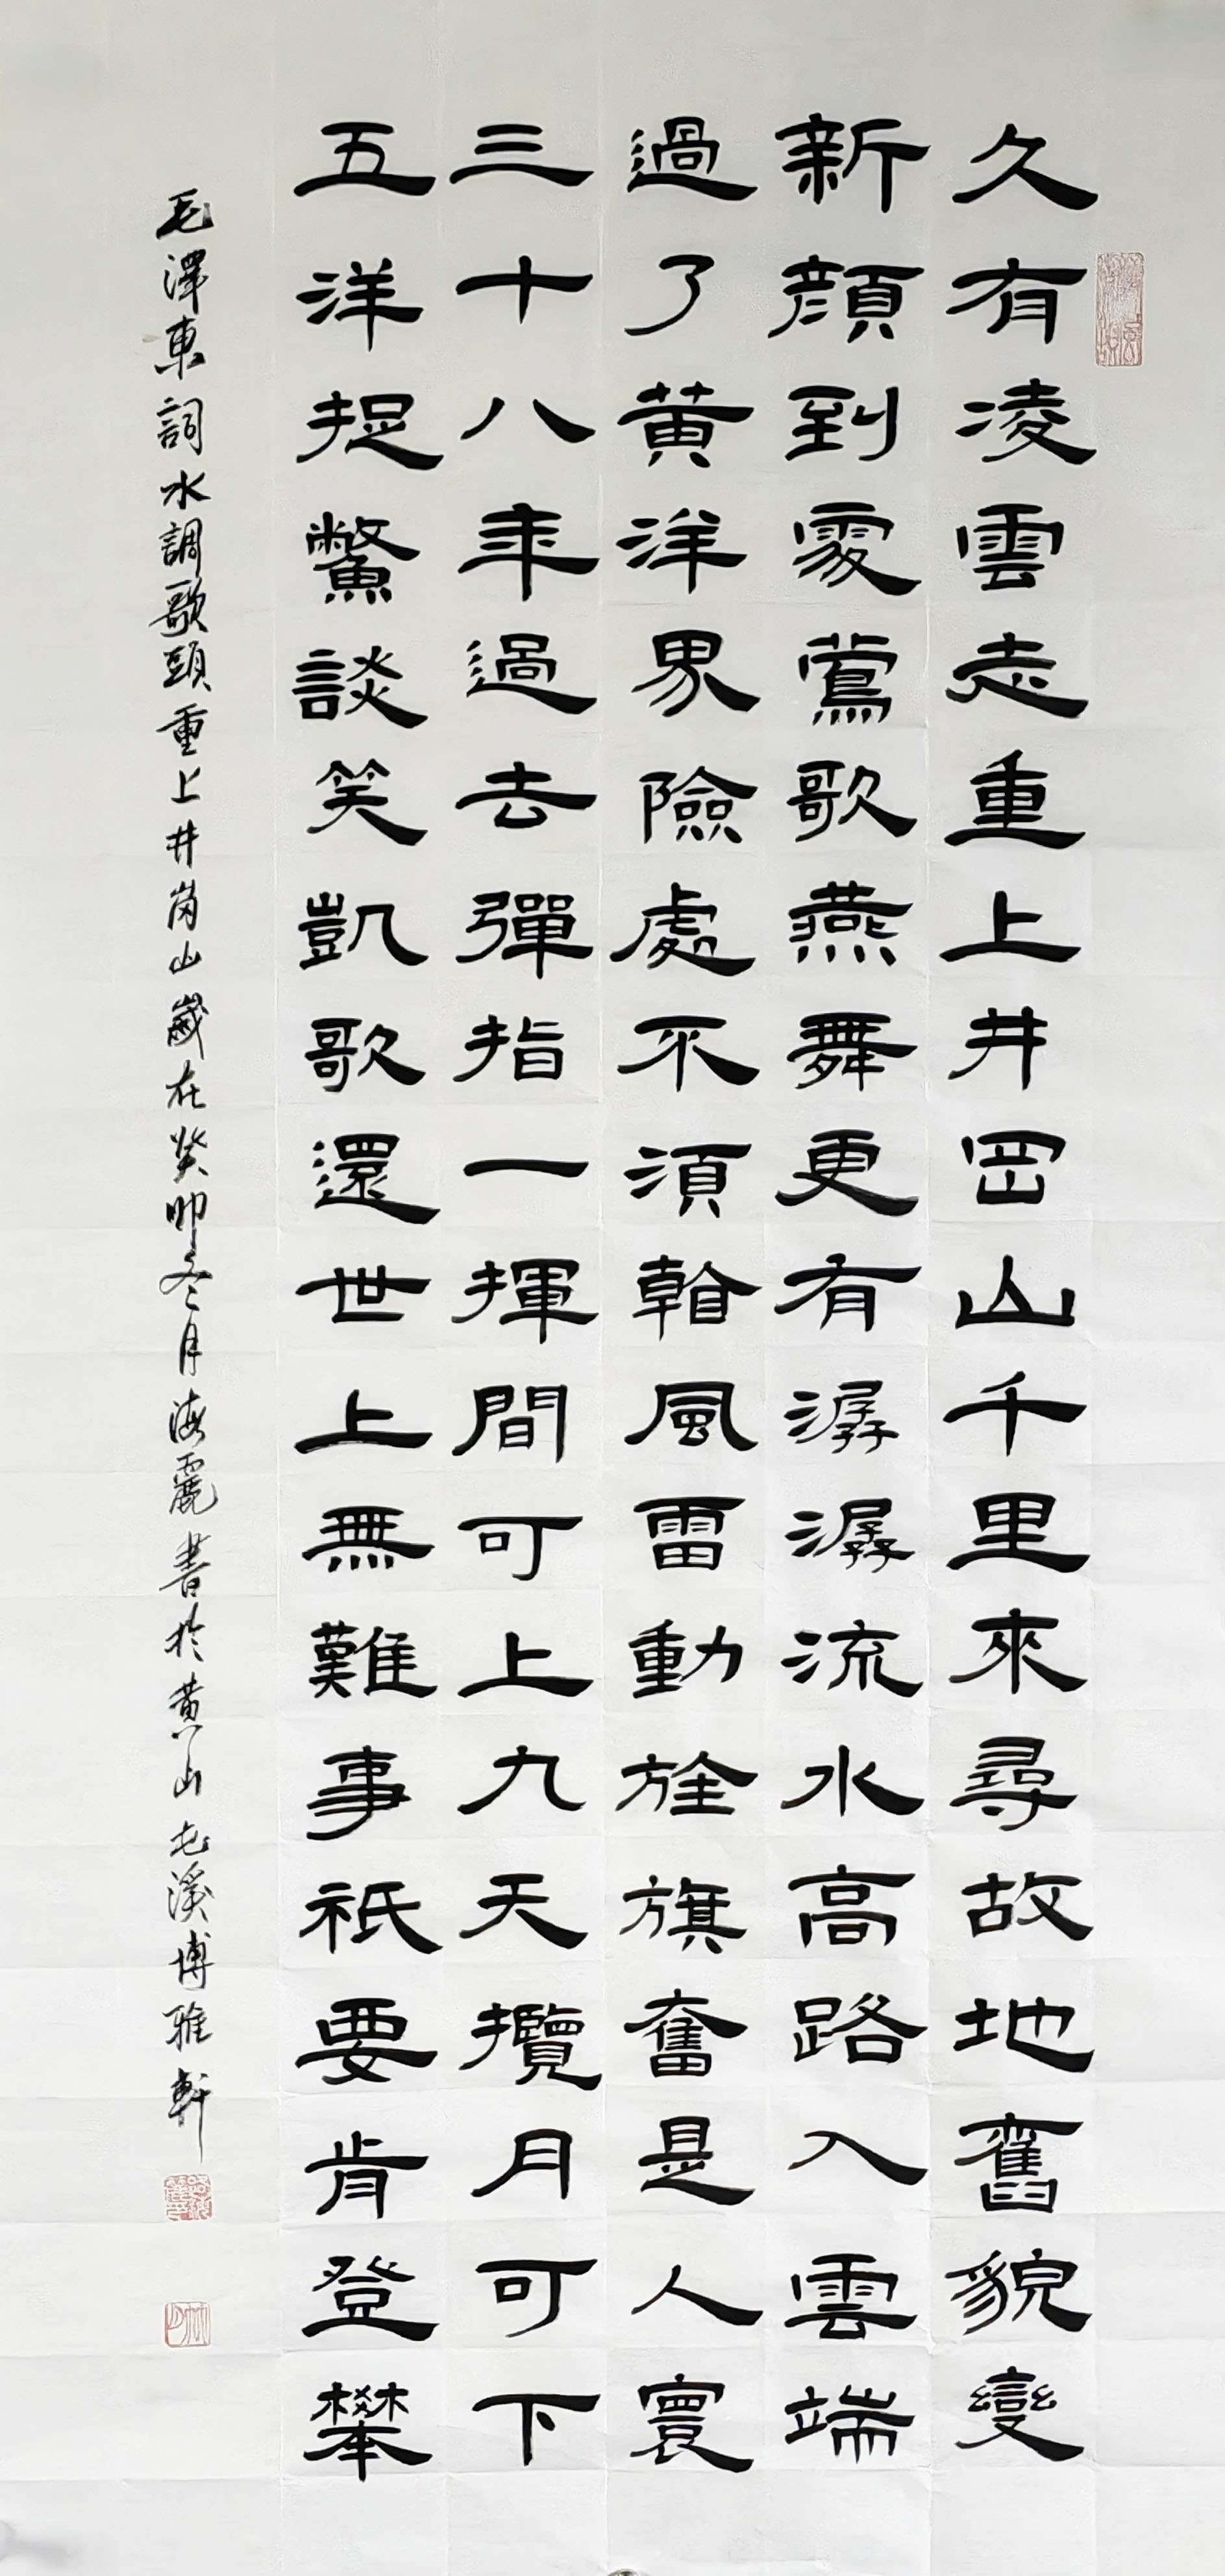 久有凌雲志重上井岡山千里來尋故地舊貌變
新顏到處鶯歌燕舞更有潺潺流水高路入雲端
過了黃洋界險處不須看風雷動旌旗奮是人寰
三十八年過去彈指一揮間可上九天攬月可下
五洋捉鱉談笑凱歌還世上無難事祇要肯登攀
毛澤東詞水調歌頭重上井崗山歲在癸卯冬月海麗書於黃山屯溪博雅軒